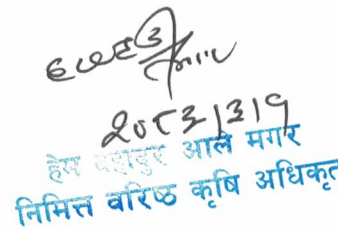 २०८३।३।९
हेम बहादुर आले मगर
निमित्त वरिष्ठ कृषि अधिकृत